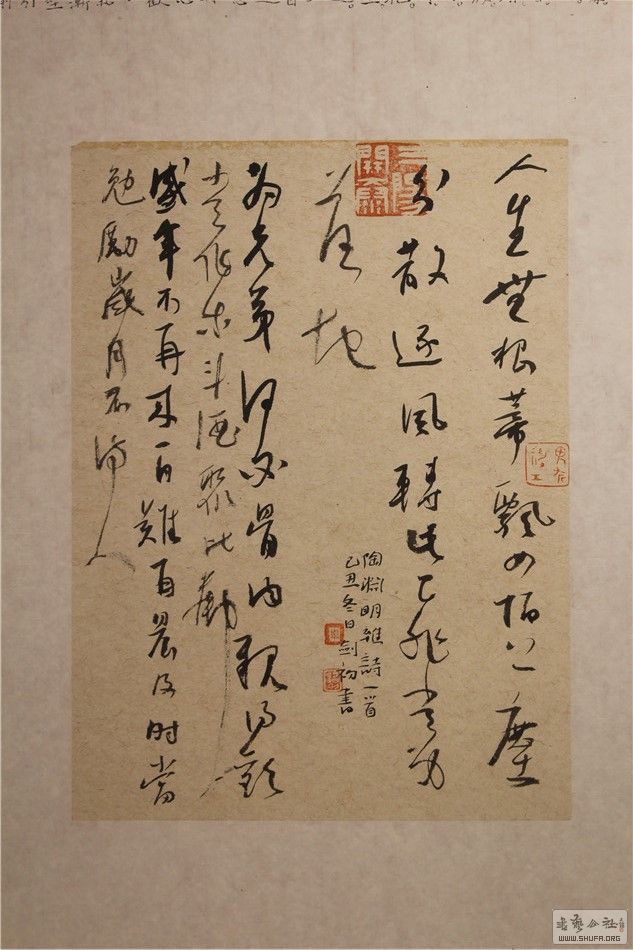 人生無根蒂飄如陌上塵
分散逐風轉此已非常身
落地
為兄弟何必骨肉親得歡
當作樂斗酒聚比鄰
盛年不再来一日難再晨及时當
勉勵歲月不待人
陶渊明雜詩一首
己丑冬日劍初書
書藝公社
WWW.SHUFA.ORG